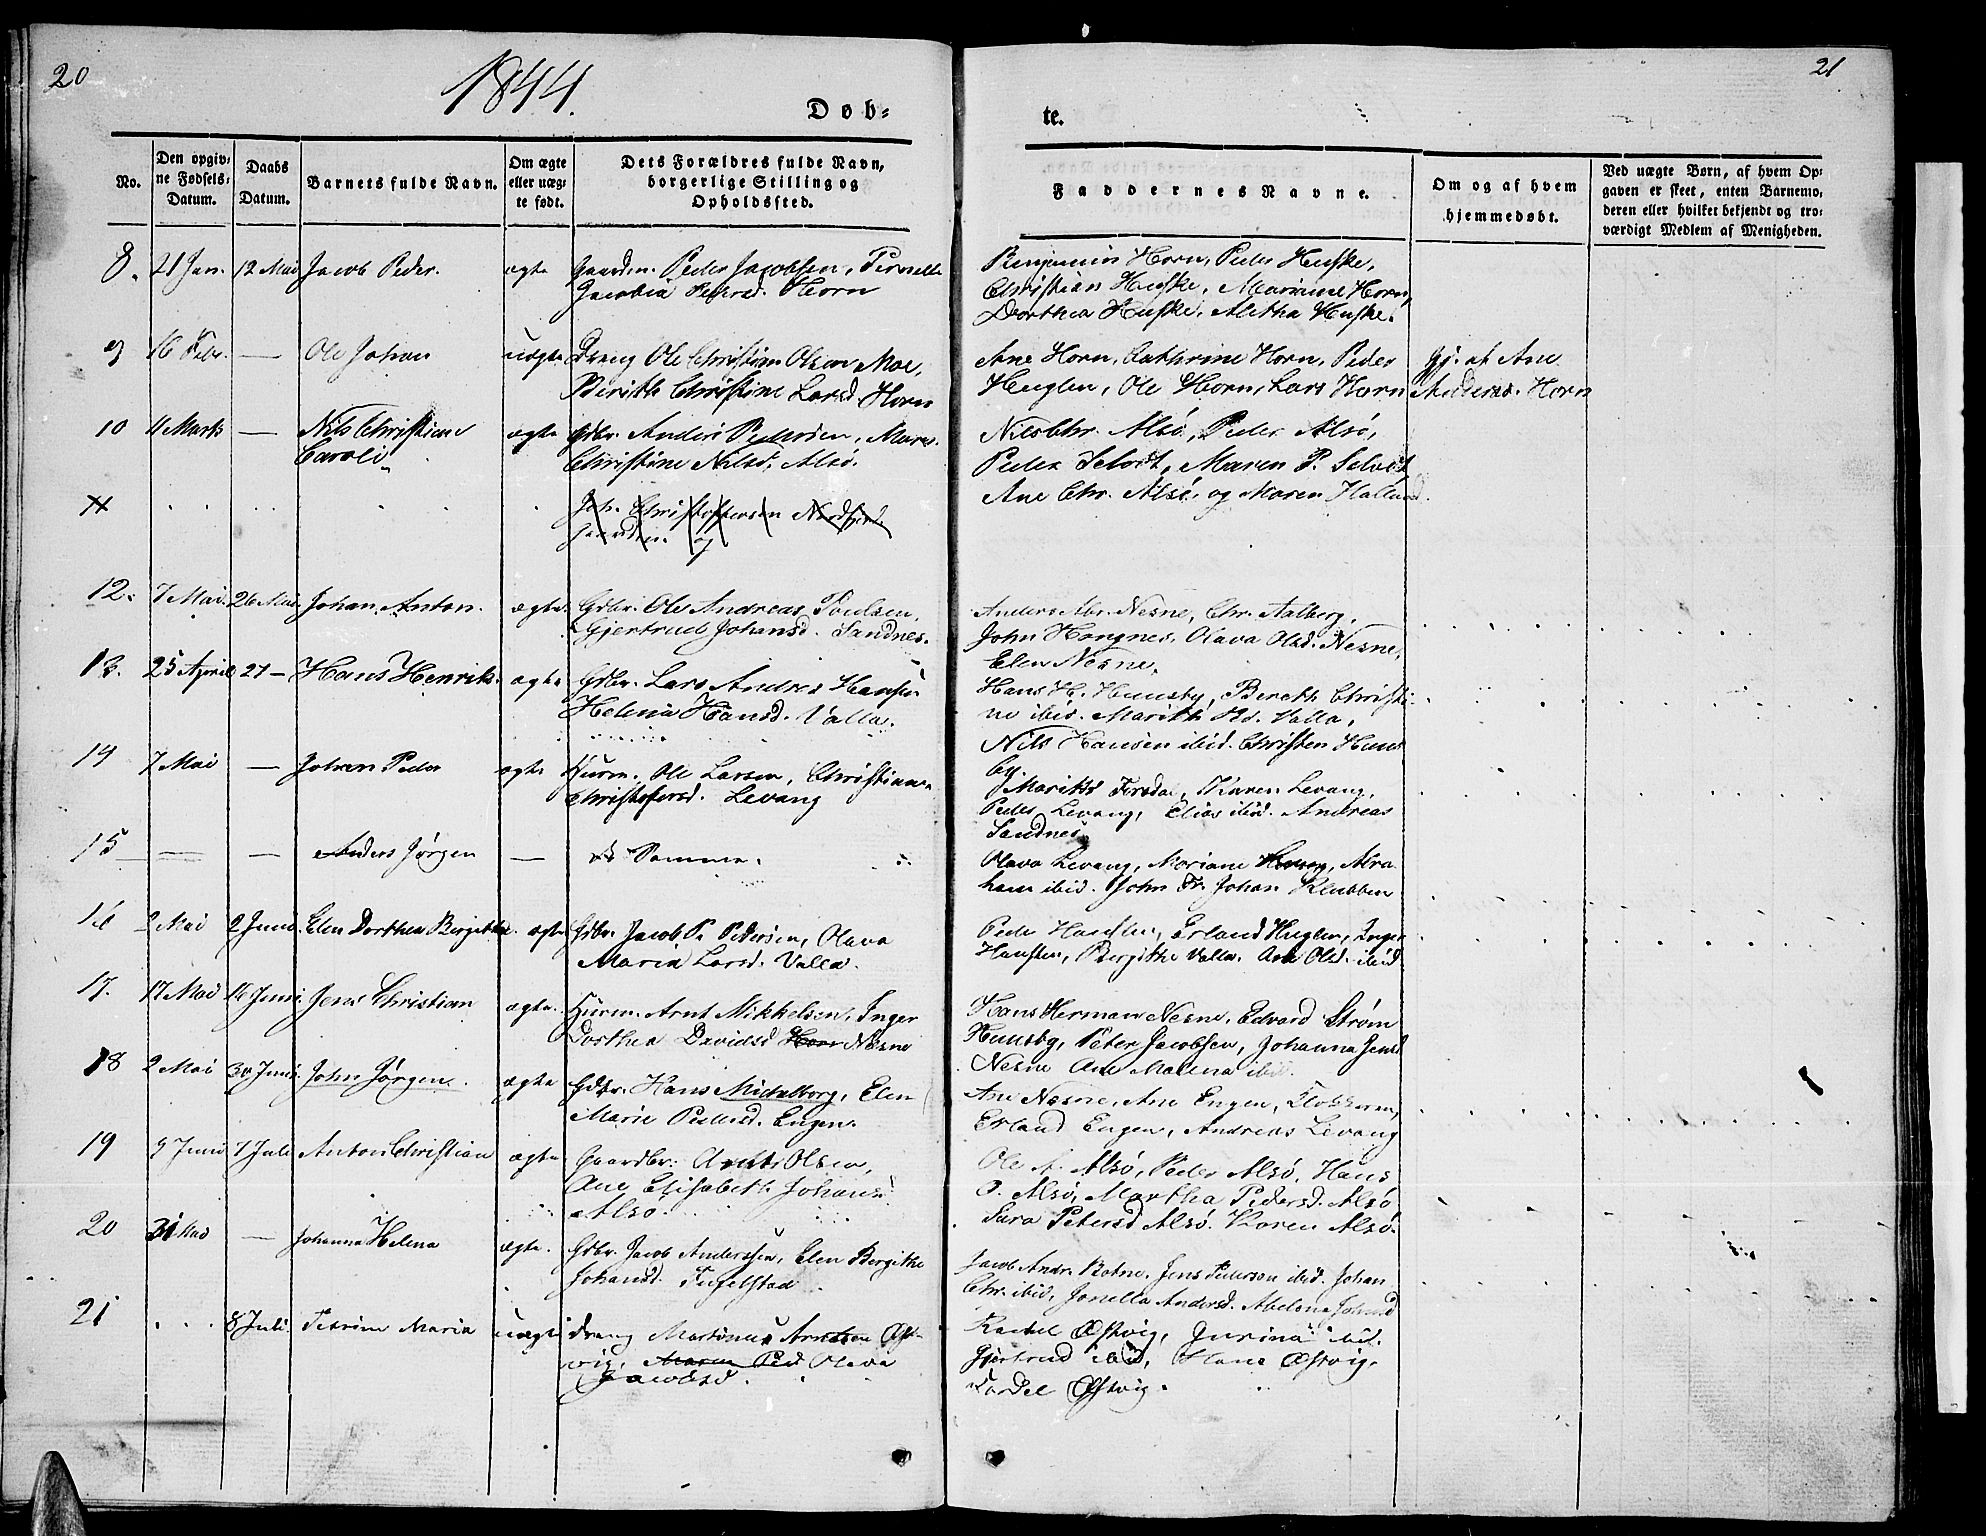 20
1844.
Døb-
No.
Den opgiv-
ne Fødsels-
Datum.
Daabs
Datum.
Barnets fulde Navn.
Om ægte
eller uæg-
te født.
Dets Forældres fulde Navn,
borgerlige Stilling og
Opholdssted.
8. 21 Jan. 12 Mai Jacob Peder. ægte Gaardm. Peder Jacobsen, Pernella
Jacobia Pedersd. Horn
9 16 Febr. — Ole Johan uægte Dreng Ole Christian Olsen Moe,
Berith Christine Larsd. Horn
10 11 Marts — Nils Christian ægte Gdbr. Anders Pedersen, Maren
Caroli Christine Nilsd. Alsø.
11 Joh. Christophersen
Gaardm. og
12. 7 Mai. 26 Mai. Johan Anton. ægte. Gdbr. Ole Andreas Poulsen,
Gjertrud Johansd. Sandnes.
13. 25 April 27 — Hans Henrik. ægte Gdbr. Lars Andreas Hansen
Helena Hansd. Valla.
14 7 Mai — Johan Peder ægte Huusm. Ole Larsen, Christianna
Christofersd. Levang
15 — — Anders Jørgen — de Samme.
16 2 Mai 2 Juni. Elen Dorthea Birgithe. ægte Gdbr. Jacob P. Pedersen, Olava
Maria Larsd. Valla.
17. 17 Mai 16 Juni Jens Christian ægte. Huusm. Arnt Mikkelsen, Inger
Dorthea Davidsd Horn Nesne
18 2 Mai 30 Juni. John Jørgen. ægte Gdbr. Hans Michalborg, Elen
Marie Pedersd. Engen.
19 9 Juni 7 Juli Anton Christian ægte Gaardbr. Arnt Olsen,
Ane Elisabeth Johansd
Alsø.
20 31 Mai — Johanna Helena ægte. Gdbr. Jacob Anderssen, Elen Bergithe
Johansd. Fugelstad
21 8 Juli. Petrine Maria uægte Dreng Martinus Arntsen Øst-
vig, Maren Ped Olava
Jacobsd.
21
te.
Faddernes Navne.
Om og af hvem
hjemmedøbt.
Ved uægte Børn, af hvem Op-
gaven er skeet, enten Barnemo-
deren eller hvilket bekjendt og tro-
værdigt Medlem af Menigheden.
Benjamin Horn, Peder Huske,
Christian Huske, Marine Horn,
Dorthea Huske, Aletha Huske.
Ane Horn, Cathrine Horn, Peder Hj. af Ane
Huglen, Ole Horn, Lars Horn Andersd. Horn
Nils Chr. Alsø, Peder Alsø,
Peder Selvet, Maren P. Selvet
Ane Chr. Alsø, og Maren Halland.
Anders Abr. Nesne, Chr. Aalberg,
John Hongnes, Olava Olsd. Nesne,
Elen Nesne.
Hans H. Huusby, Bereth Christi-
ne ibid. Marith Valla,
Nils Hansen ibid. Christen Huus
by
Marith Forsdal, Karen Levang,
Peder Levang, Elias ibid. Andreas
Sandnes
Olava Levang, Mariane Levang, Abra
ham ibid. John Fr. Johan Klubben
Peder Hansten, Erland Huglen, Inger
Hansten, Bergithe Valla. Ane Olsd. ibid
Hans Herman Nesne, Edvard Strøm
Huusby, Peter Jacobsen, Johanna Jensd
Nesne Ane Malena ibid.
Ane Nesne, Ane Engen, Klokkeren,
Erland Engen, Andreas Levang
Ole A. Alsø, Peder Alsø, Hans
O. Alsø, Martha Pedersd. Alsø
Sara Petersd Alsø. Karen Alsø.
Jacob Andr. Botne, Jens Pedersen ibid. Johan
Chr. ibid, Jonella Andersd. Abelona Johansd
Rachel Østvig, Jurina ibid.
Gjertrud ibid, Hans Østvig.
Tordel Østvig.